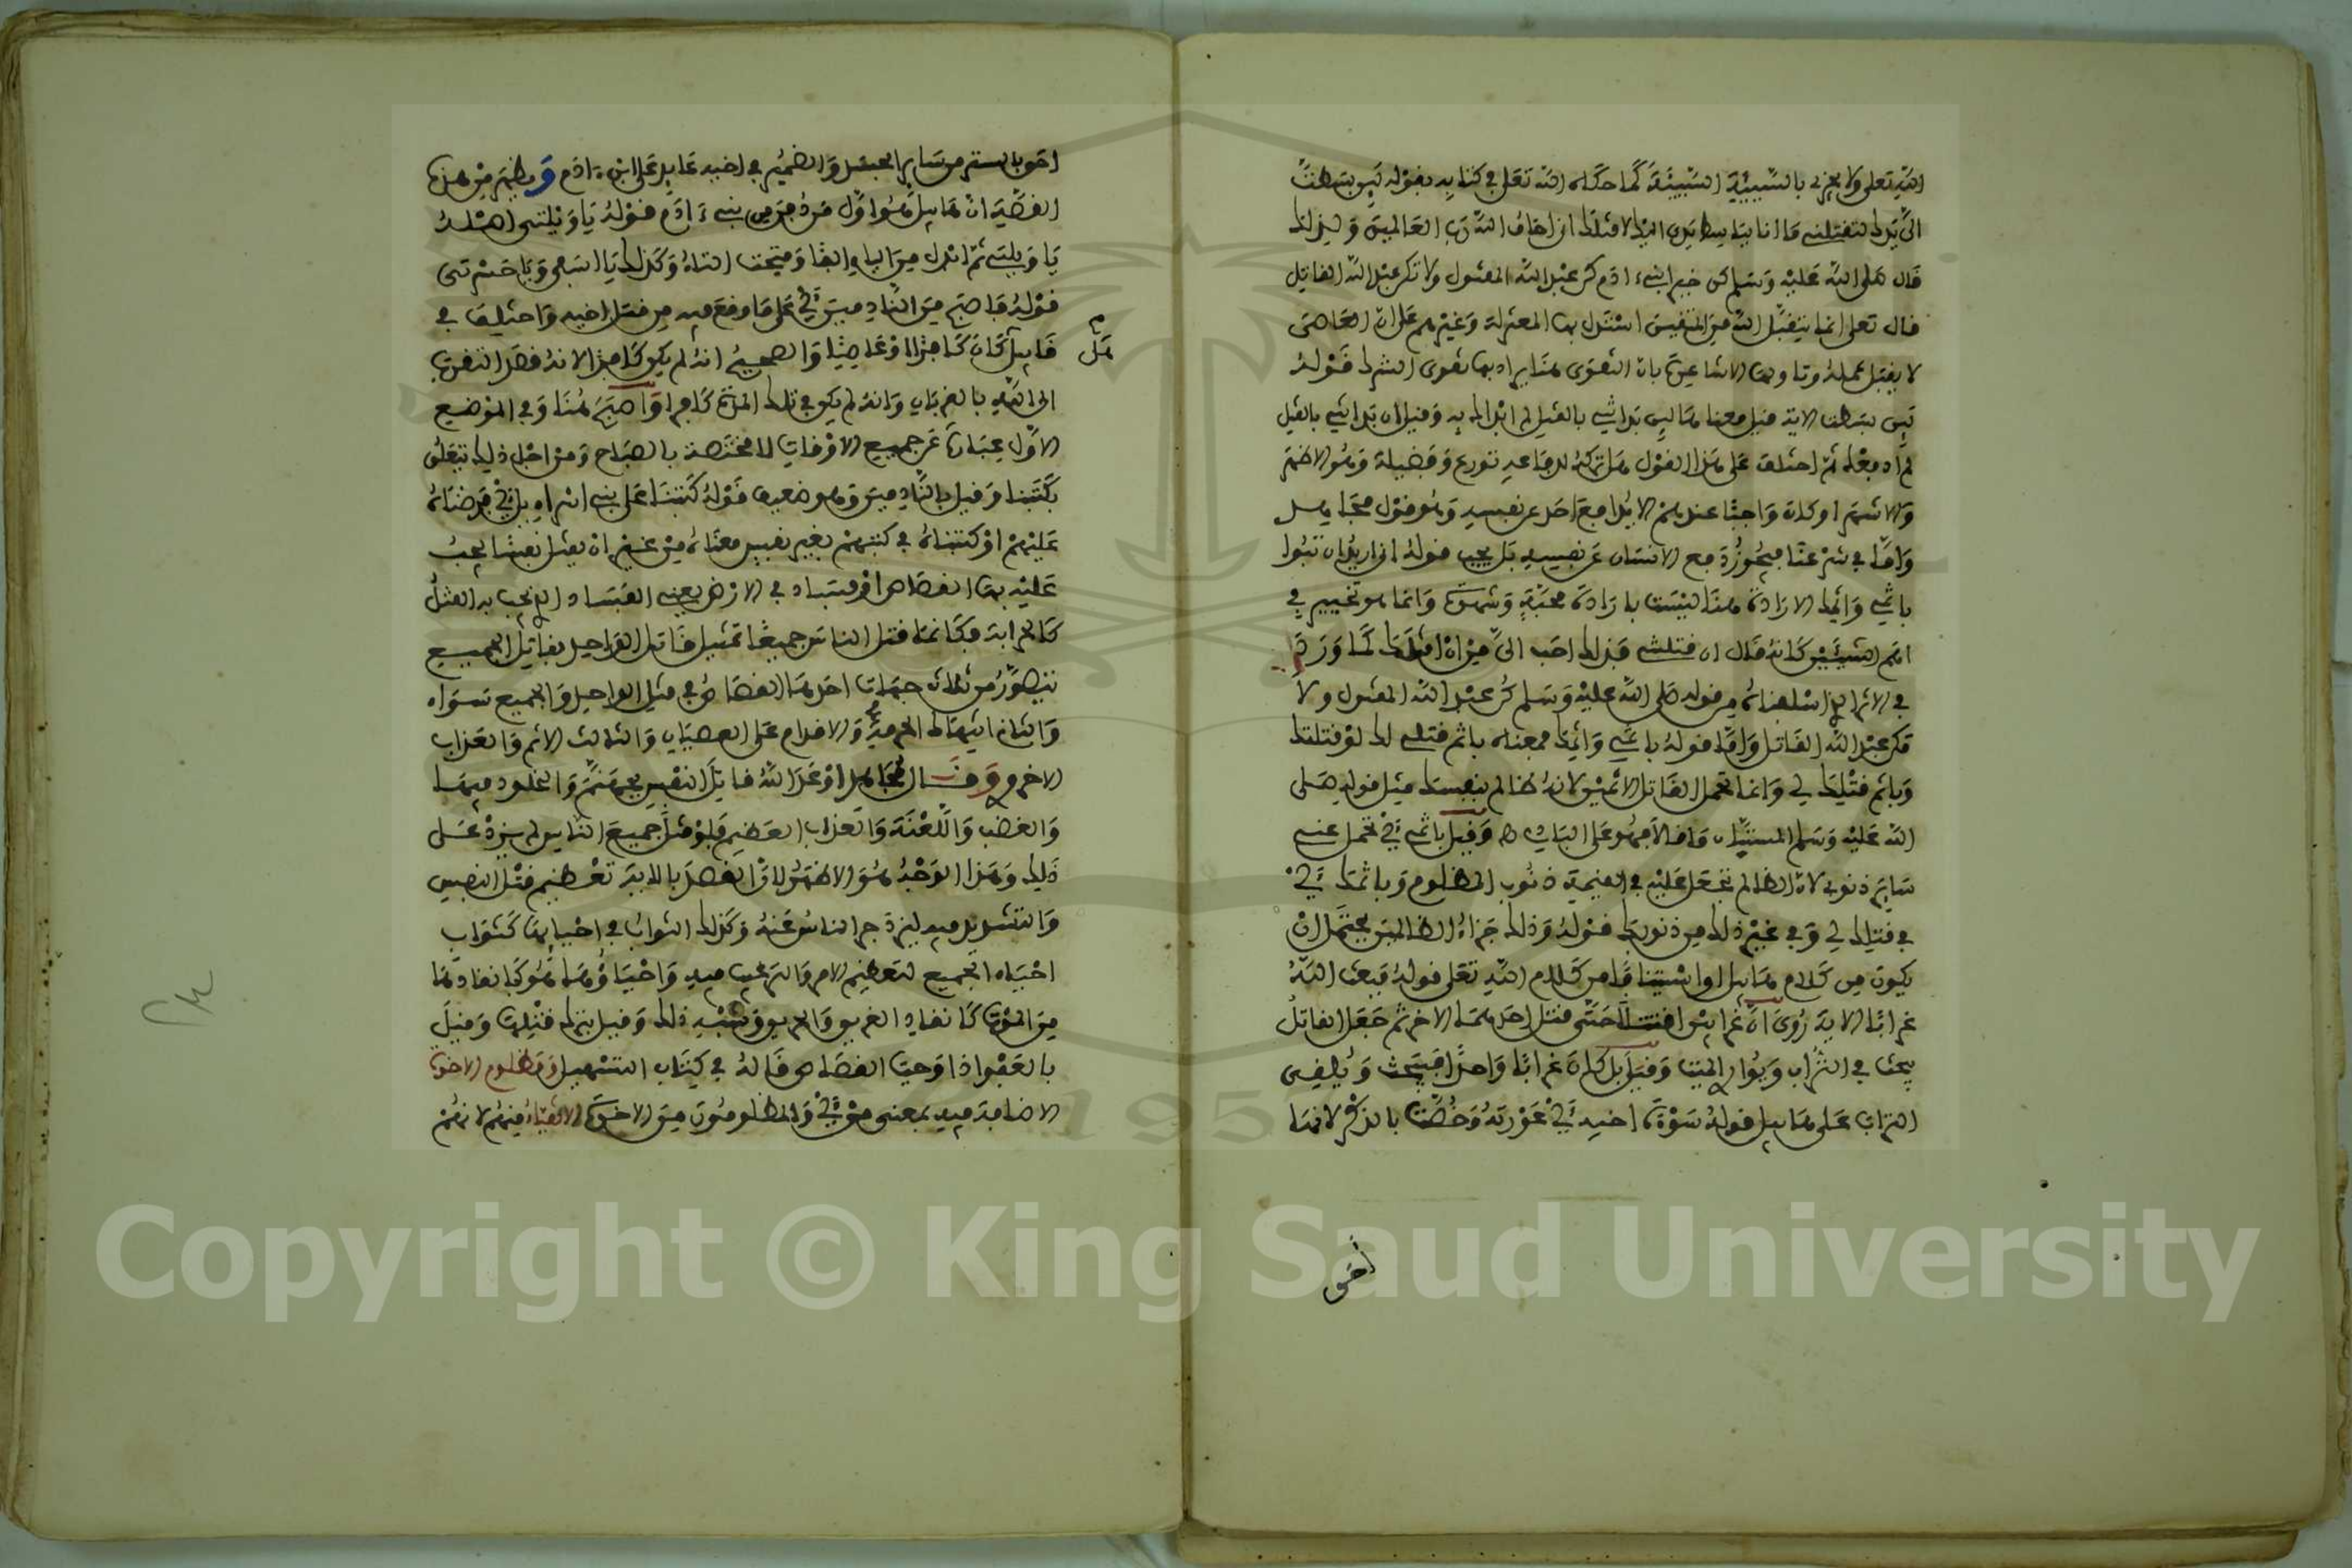 الله تعلى ولا يجزي بالسيئة السيئة كما حكاه الله تعلى في كتابه بقوله لين بسطت
الي يدك لتقتلني ما انا بباسط يدي اليك لاقتلك اني اخاف الله رب العالمين ولذلك
قال صلى الله عليه وسلم كن خير ابني ادم كن عبد الله المقتول ولا تكن عبد الله القاتل
قال تعلى انما يتقبل الله من المتقين استدل بها المعتزلة وغيرهم على ان العاصي
لا يقبل عمله وتاولها الاشاعرة بان التقوى هنا يراد بها تقوى الشرك قوله
لين بسطت الاية قيل معناه لين بداتني بالقتل لم ابداك به وقيل ان بداتني بالقتل
لم ادافعك ثم اختلف على هذا القول هل تركه للدفاع تورع وفضيلة وهو الاظهر
والاشهر او كان واجبا عندهم الا يدافع احد عن نفسه وهو قول مجاهد
واما في شرعنا فيجوز دفع الانسان عن نفسه بل يجب قوله اني اريد ان تبوا
باثمي واثمك الارادة هنا ليست بارادة محبة وشهوة وانما هو تخيير في
اهم الشيئين كانه قال ان قتلتني فذلك احب الي من ان اقتلك كما ورد
في الاثر الذي اسلفناه من قوله صلى الله عليه وسلم كن عبد الله المقتول ولا
تكن عبد الله القاتل واما قوله باثمي واثمك فمعناه باثم قتلي لك لو قتلتك
وباثم قتلك لي وانما تحمل القاتل الاثمين لانه ظالم بنفسك مثل قوله صلى
الله عليه وسلم المستبان ما قالا فهو على البادي وقيل باثمي اي تحمل عني
ساير ذنوبي لان الظالم تجعل عليه في القيمة ذنوب المظلوم وباثمك اي
في قتلك لي وفي غير ذلك من ذنوبك قوله وذلك جزاء الظالمين يحتمل ان
يكون من كلام هابيل او استينافا من كلام الله تعلى قوله فبعث الله
غرابا الاية روي ان غرابين اقتتلا حتى قتل احدهما الاخر ثم جعل القاتل
يبحث في التراب ويواري الميت وقيل بل كان غرابا واحدا فبحث ويلقي
التراب على هابيل قوله سوءة اخيه اي عورته وخصت بالذكر لانها
احق
احق بالستر من ساير الجسد والضمير في اخيه عايد على ابن ءادم ويظهر من هذه
القصة ان هابيل هو اول من دفن من بني ءادم قوله يا ويلتي اصله
يا ويلتي ثم ابدل من الياء الفا وفتحت التاء وكذلك يا اسفى ويا حسرتى
قوله فاصبح من النادمين اي على ما وقع فيه من قتل اخيه واختلف في
قابيل كان كافرا او عاصيا والصحيح انه لم يكن كافرا لانه قصد التقرب
هل
الى الله بالقربان وانه لم يكن في تلك المدة كافرا واصبح هنا وفي الموضع
الاول عبارة عن جميع الاوقات لا مختصة بالصباح ومن اجل ذلك يتعلق
بكتبنا وقيل بالنادمين وهو ضعيف قوله كتبنا على بني اسراءيل اي فرضناه
عليهم او كتبناه في كتبهم بغير نفس معناه من غير ان يقتل نفسا يجب
عليه بها القصاص او فساد في الارض يعني الفساد الذي يجب به القتل
كالحرابة فكانما قتل الناس جميعا تمثيل قاتل الواحد بقاتل الجميع
يتصور من ثلاث جهات احدها القصاص في قتل الواحد والجميع سواء
والثاني انتهاك الحرمة والاقدام على العصيان والثالث الاثم والعذاب
الاخروي وقال مجاهد اوعد الله قاتل النفس بجهنم والخلود فيها
والغضب واللعنة والعذاب العظيم فلو قتل جميع الناس لم يزد على
ذلك وهذا الوجه هو الاظهر لان القصد بالاية تعظيم قتل النفس
والتشديد فيه لينزجر الناس عنه وكذلك الثواب في احيايها كثواب
احياء الجميع لتعظيم الامر والترغيب فيه واحياؤها هو كانقاذها
من الموت كانقاذ الغريق والحريق وشبه ذلك وقيل بترك قتلها وقيل
بالعفو اذا وجب القصاص قاله في كتاب التسهيل ومظلوم الاخوة
الاضافة فيه بمعنى من اي والمظلومون من الاخوة الاتقياء منهم لانهم